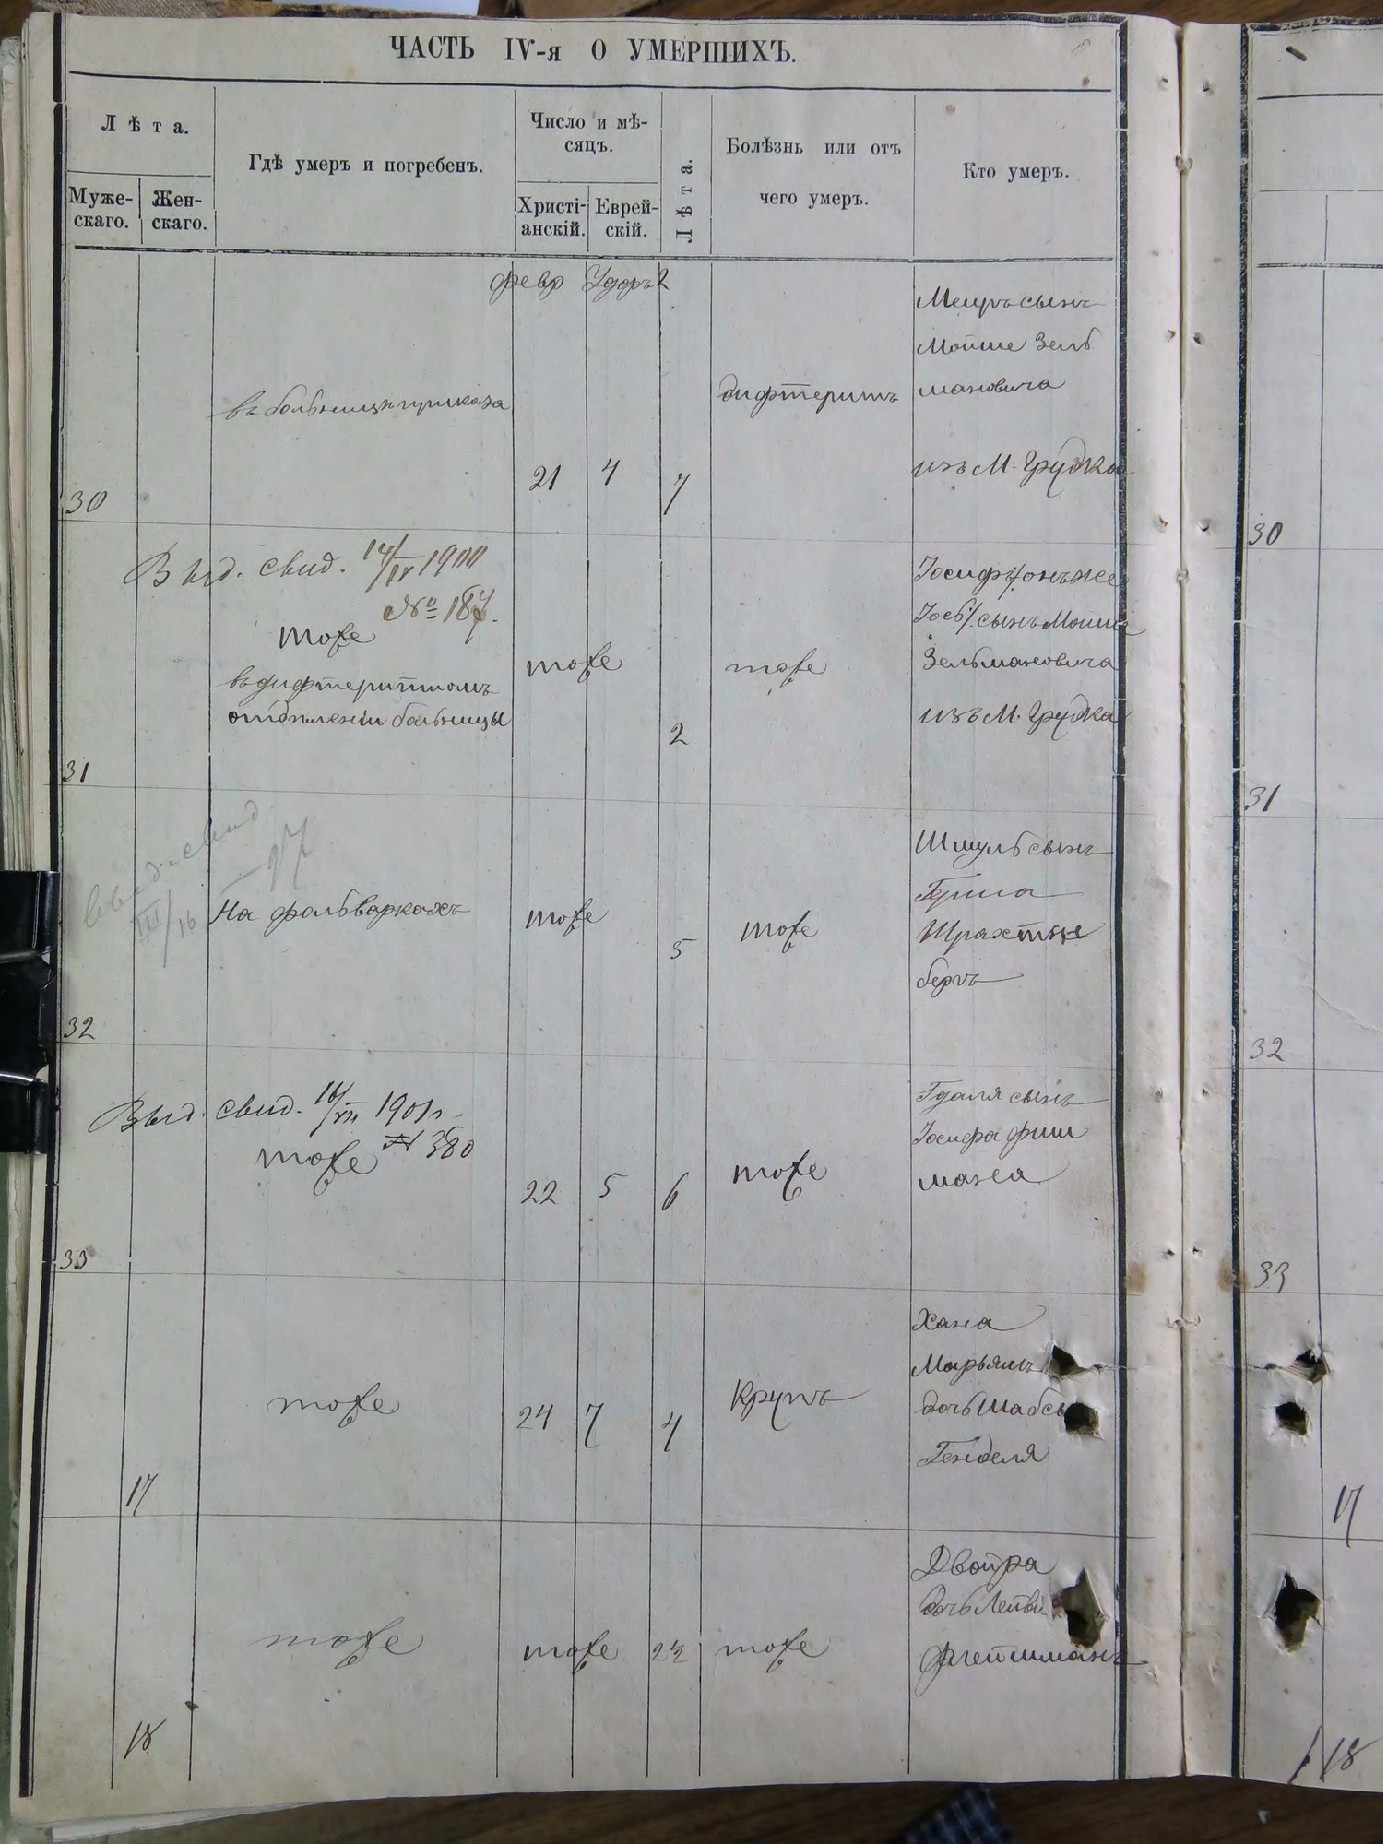 ЧАСТЬ IV-я О УМЕРШИХЪ.
Лѣта.
Муже-
скаго.
Жен-
скаго.
Гдѣ умеръ и погребенъ.
Число и мѣ-
сяцъ.
Христі-
анскій.
Еврей-
скій.
Лѣта.
Болѣзнь или отъ
чего умеръ.
Кто умеръ.
февр Удоръ 2
30
въ больницѣ приказа
21 4 7
дифтеритъ
сынъ
Мойше Зель
мановича
изъ М. Грудка
30
Выд. свид. 14/IV 1900
№ 187.
31
тоже
въ дифтеритномъ
отдѣленіи больницы
тоже
2
тоже
Іосифъ/онъ же
Іось/ сынъ Мойше
Зельмановича
изъ М. Грудка
31
выд. свид
III/16 97
32
На фольваркахъ
тоже
5
тоже
Шмуль сынъ
берга
32
Выд. свид. 16/VII 1901 г.
№ 380
33
тоже
22 5 6
тоже
Гдаля сынъ
Іосифа Фиш
мана
33
17
тоже
24 7 4
Крупъ
Хана
Марьямъ
дочь Шабсы
Генделя
17
18
тоже
тоже
2½
тоже
Двойра
дочь Лейви
Флейшманъ
18